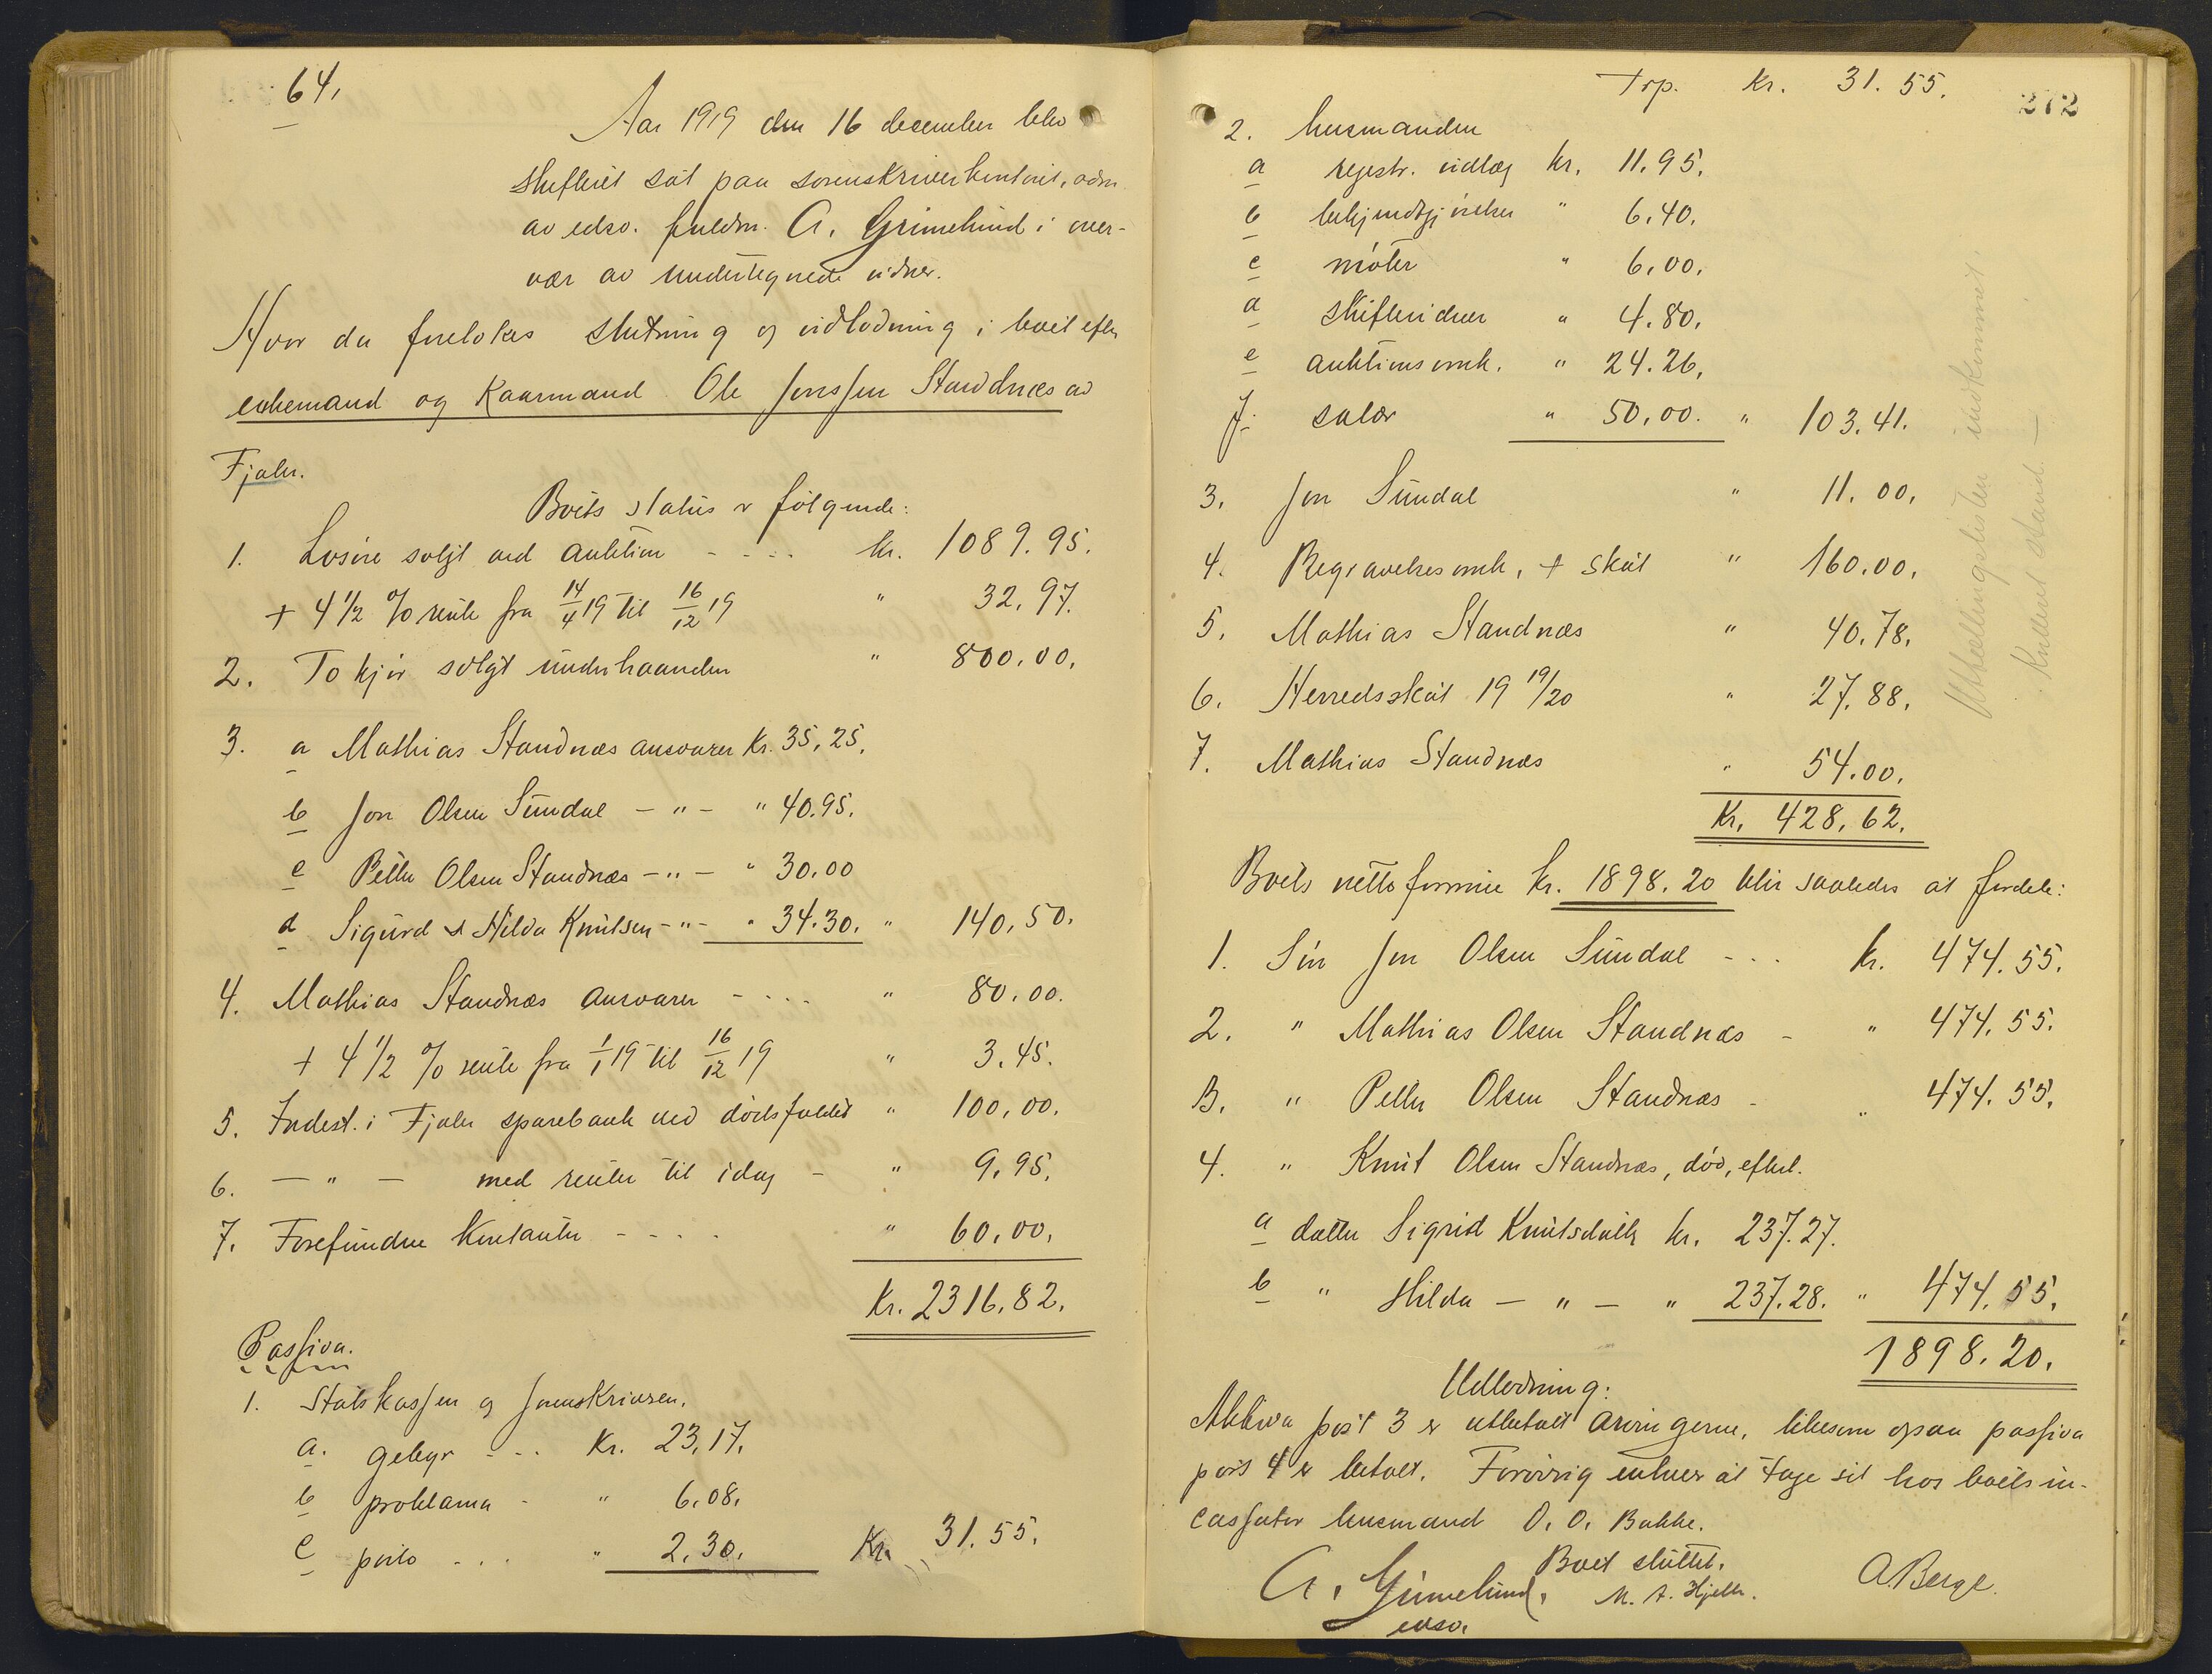 64.
Aar 1919 den 16 december blev
skifteret sat paa sorenskriverkontoret, adm.
av edsv. fuldm. A. Grimelund i over-
vær av undertegnede vidner.
Hvor da foretokes slutning og utlodning i boet efter
enkemand og kaarmand Ole Jonssen Standnæs av
Fjaler.
Boets status er følgende:
1. Losøre solgt ved auktion - - - - kr. 1089.95.
+ 4 1/2 % rente fra 14/4 19 til 16/12 19 " 32.97.
2. To kjør solgt underhaanden " 800.00.
3. a Mathias Standnæs ansvarer kr. 35,25.
b Jon Olsen Sundal - " - " 40.95.
c Petter Olsen Standnæs - " - " 30.00
d Sigurd & Hilda Knutsen - " - " 34.30. " 140,50.
4. Mathias Standnæs ansvarer - - - - " 80.00.
+ 4 1/2 % rente fra 1/1 19 til 16/12 19 " 3.45.
5. Indest. i Fjaler sparebank ved dødsfaldet " 100,00.
6. - " - med renter til idag - " 9,95.
7. Forefundne kontanter - - - - " 60.00.
Kr. 2316,82.
Passiva.
1. Statskassen og sorenskriveren.
a. gebyr - - - Kr. 23,17.
b proklama - " 6.08.
c porto - - - " 2.30. Kr. 31.55.
272
Trp. Kr. 31.55.
2. lensmanden
a regestr. utlæg kr. 11.95.
b bekjendtgjørelser " 6.40.
c møter " 6.00.
d skiftevidner " 4.80.
e auktionsomk. " 24.26.
f. salær " 50,00. " 103.41.
3. Jon Sundal " 11.00.
4. Begravelsesomk. + skat " 160.00.
5. Mathias Standnæs " 40.78.
6. Herredsskat 19 19/20 " 27.88.
7. Mathias Standnæs " 54.00.
Kr. 428,62.
Utbetalingslisten indkommet.
Boets netto formue kr. 1898.20 blir saaledes at fordele:
1. Søn Jon Olsen Sundal - - - kr. 474.55.
2. " Mathias Olsen Standnæs - " 474.55.
3. " Petter Olsen Standnæs - " 474.55.
4. " Knut Olsen Standnæs, død, efterl.
a datter Sigrid Knutsdatter kr. 237.27.
b " Hilda - " - " 237.28. " 474.55.
1898.20.
Utlodning:
Aktiva post 3 er utbetalt arvingerne, likesom ogsaa passiva
post 4 er betalt. Forøvrig enhver at tage sit hos boets in-
cassator lensmand O. O. Bakke.
Boet sluttet.
A. Grimelund, M. A. Hjelle. A. Berge.
edsv.